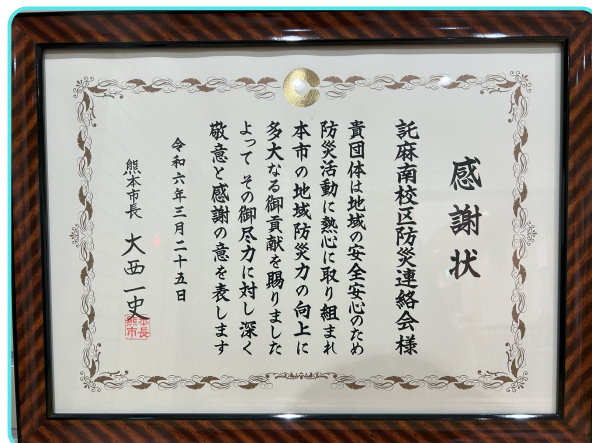 感謝状
託麻南校区防災連絡会様
貴団体は地域の安全安心のため
防災活動に熱心に取り組まれ
本市の地域防災力の向上に
多大なる御貢献を賜りました
よって その御尽力に対し深く
敬意と感謝の意を表します
令和六年三月二十五日
熊本市長 大西一史
熊本市長